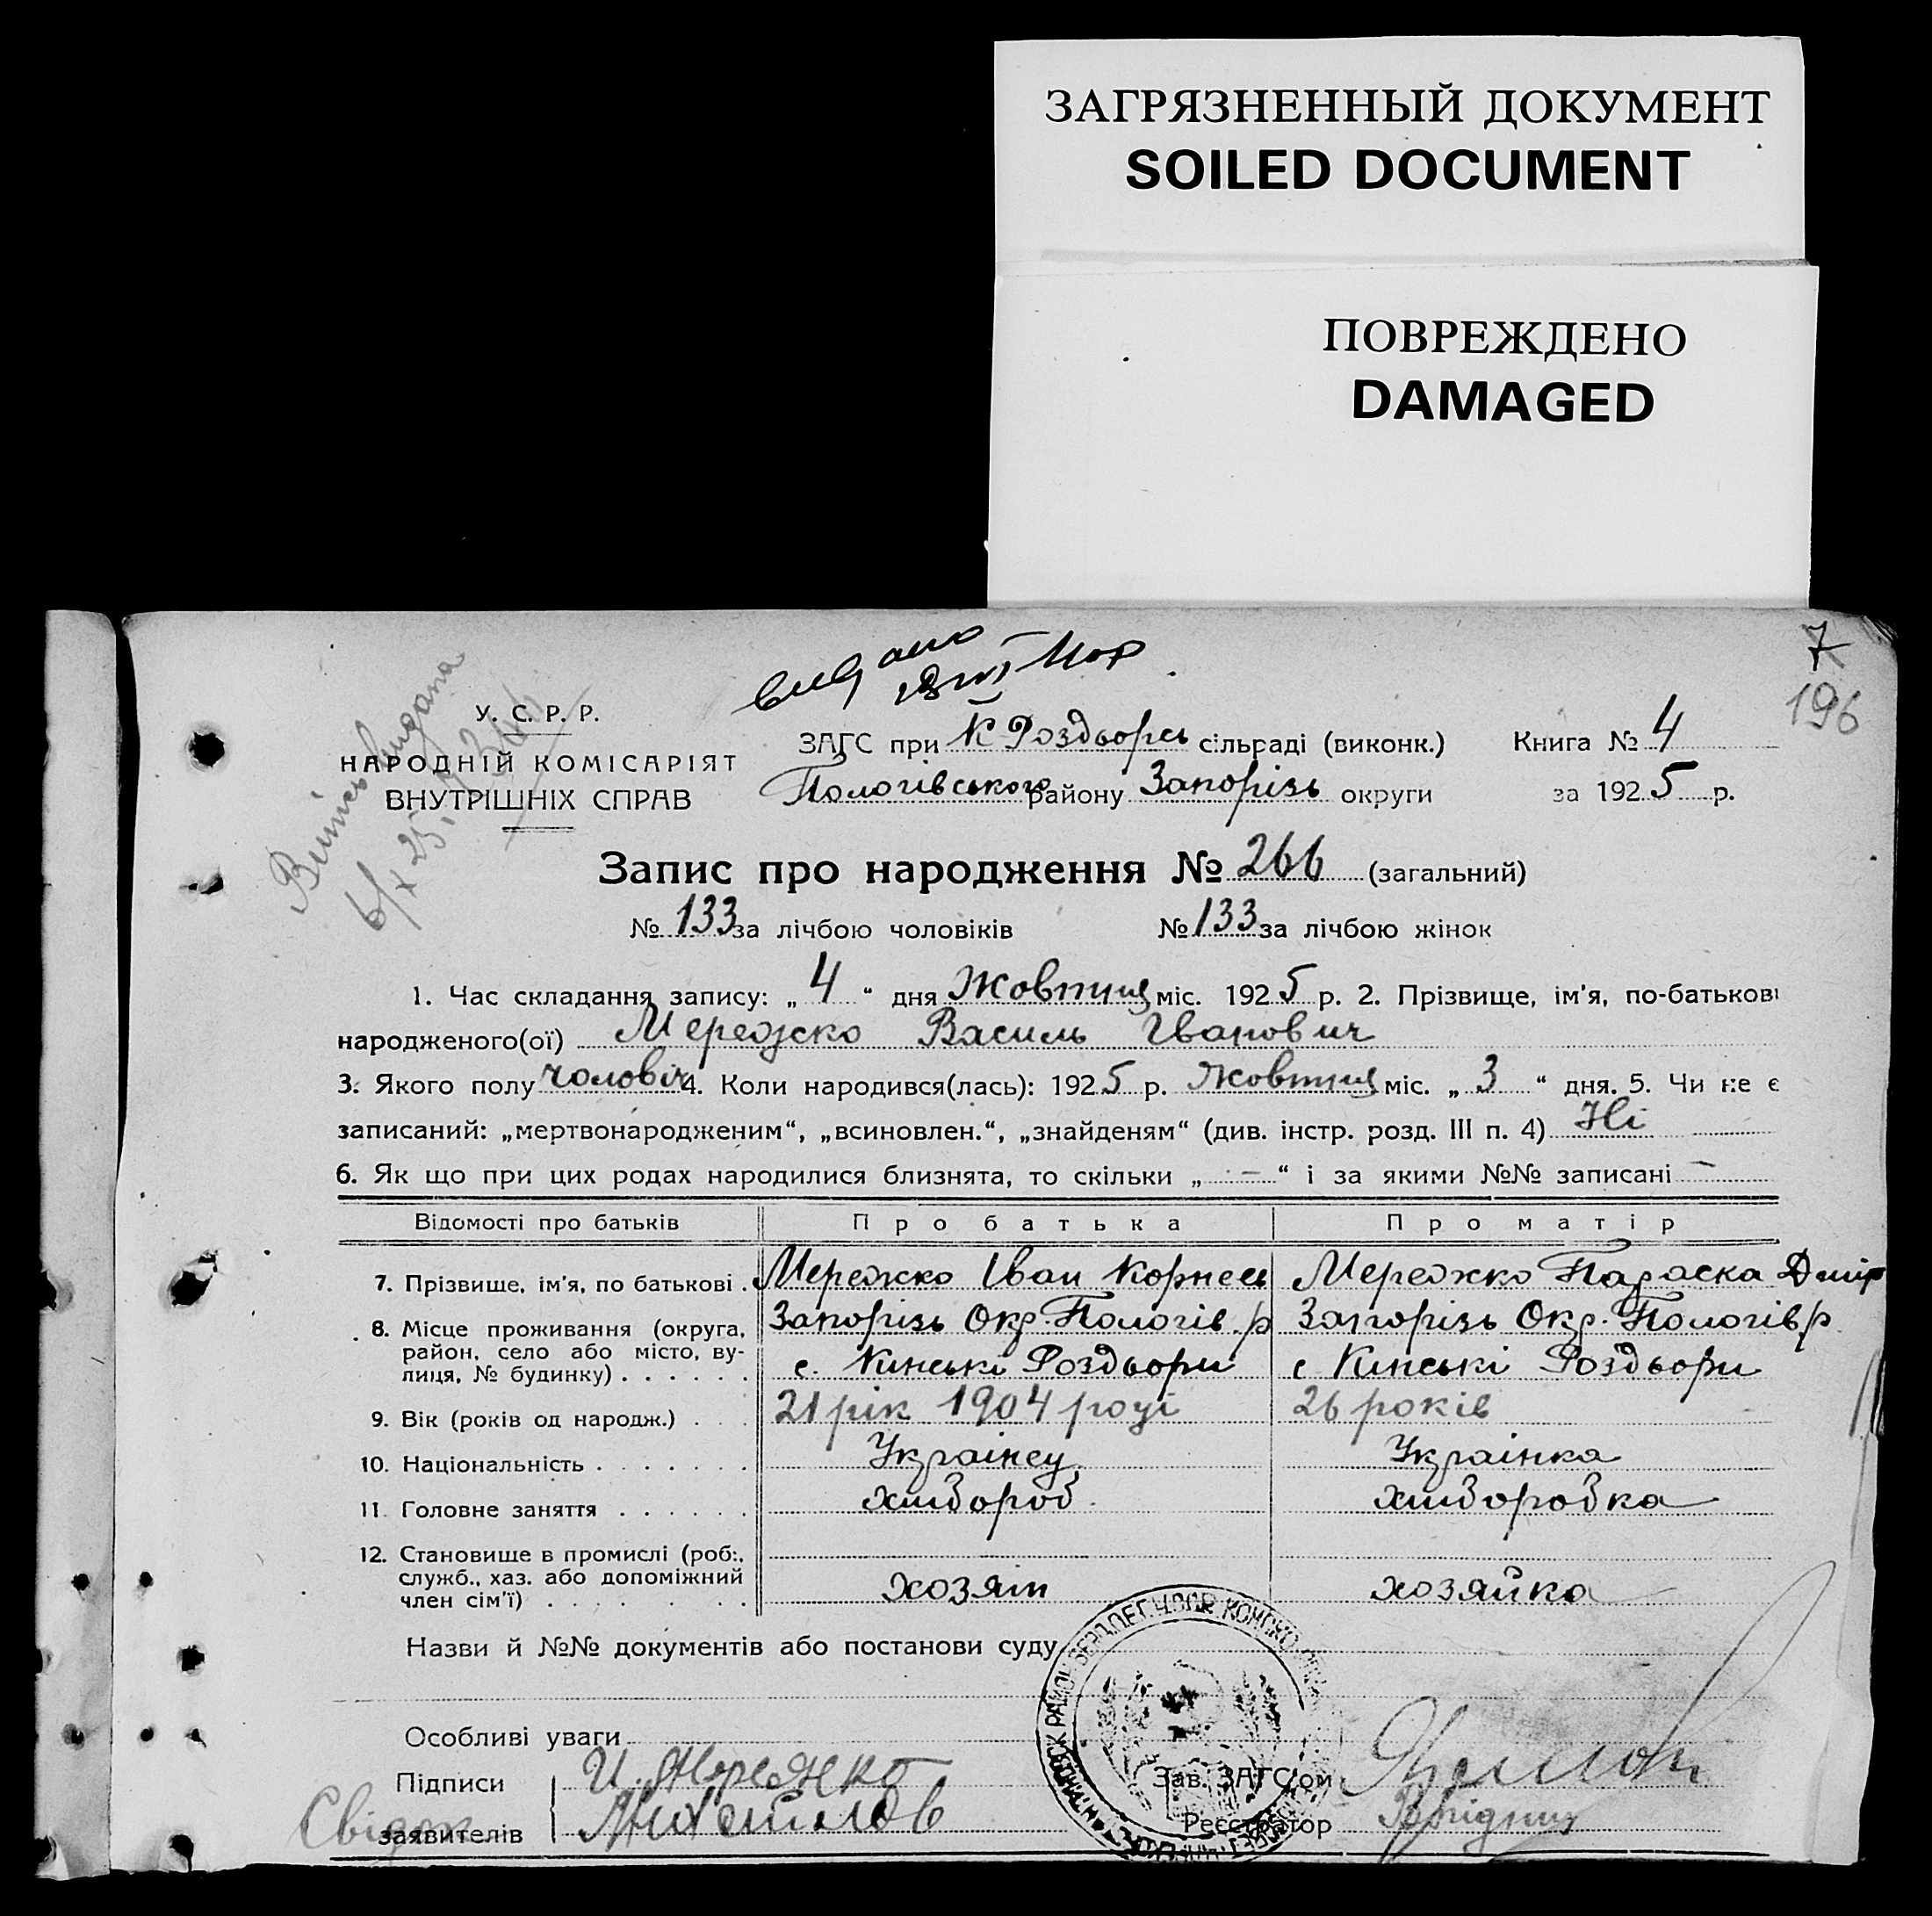 ЗАГРЯЗНЕННЫЙ ДОКУМЕНТ
SOILED DOCUMENT
ПОВРЕЖДЕНО
DAMAGED
7
196
У. С. Р. Р.
НАРОДНІЙ КОМІСАРІЯТ
ВНУТРІШНІХ СПРАВ
ЗАГС при К Роздворсь сільраді (виконк.) Книга № 4
Пологівського району Запорізь округи за 1925 р.
Запис про народження № 266 (загальний)
№ 133 за лічбою чоловіків № 133 за лічбою жінок
1. Час складання запису: „ 4 “ дня Жовтня міс. 1925 р. 2. Прізвище, ім'я, по-батькові
народженого(ої) Мережко Василь Іванович
3. Якого полу чоловіч 4. Коли народився(лась): 1925 р. Жовтня міс. „ 3 “ дня. 5. Чи не є
записаний: „мертвонародженим“, „всиновлен.“, „знайденям“ (див. інстр. розд. III п. 4) Ні
6. Як що при цих родах народилися близнята, то скільки „ — “ і за якими №№ записані —
Відомості про батьків Про батька Про матір
7. Прізвище, ім'я, по батькові . Мережко Іван Корнеев Мережко Параска Дмір
8. Місце проживання (округа, район, село або місто, вулиця, № будинку) . . . . . . Запорізь Окр. Пологів. р Запорізь Окр. Пологів р
с. Кінські Роздвори с Кінські Роздвори
9. Вік (років од народж.) . . . 21 рік 1904 році 26 років
10. Національність . . . . . . . Українец Українка
11. Головне заняття . . . . . . хлібороб хліборобка
12. Становище в промислі (роб:, служб., хаз. або допоміжний член сім'ї) . . . . . . . . хозяїн хозяйка
Назви й №№ документів або постанови суду
Особливі уваги
Підписи И. Мережко Зав. ЗАГС'ом
Свідок заявителів Реєстратор